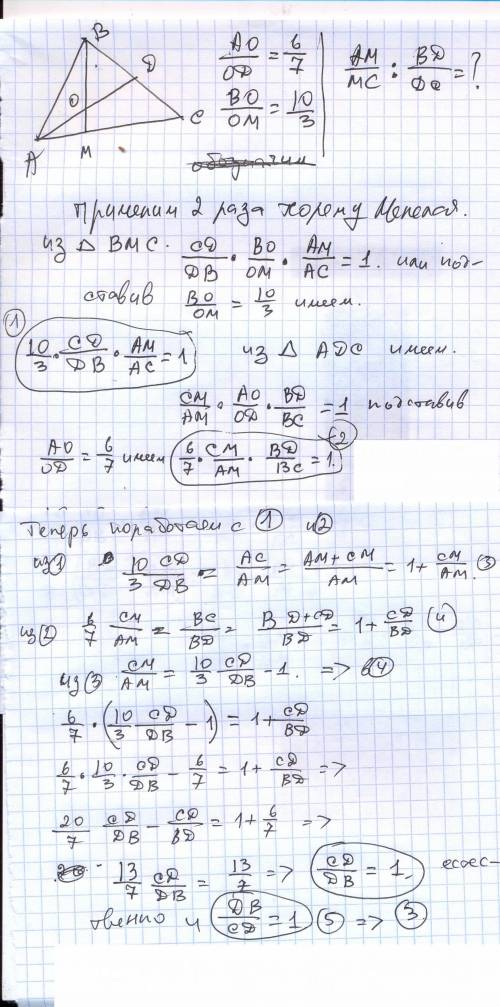 B
D
O
C
A
M
AO/OD = 6/7
BO/OM = 10/3
AM/MC : BD/DC = ?
Применим 2 раза теорему Менелая.
из △ BMC. CD/DB · BO/OM · AM/AC = 1. или под-
ставив BO/OM = 10/3 имеем.
① 10/3 · CD/DB · AM/AC = 1 из △ ADC имеем.
CM/AM · AO/OD · BD/BC = 1 подставив
AO/OD = 6/7 имеем 6/7 · CM/AM · BD/BC = 1. ②
Теперь поработаем с ① и ②
из① 10/3 CD/DB = AC/AM = AM+CM/AM = 1 + CM/AM. ③
из② 6/7 CM/AM = BC/BD = BD+CD/BD = 1 + CD/BD ④
из ③ CM/AM = 10/3 CD/DB - 1. => в④
6/7 · (10/3 CD/DB - 1) = 1 + CD/BD
6/7 · 10/3 · CD/DB - 6/7 = 1 + CD/BD =>
20/7 CD/DB - CD/BD = 1 + 6/7 =>
13/7 CD/DB = 13/7 => CD/DB = 1. естес-
твенно и DB/CD = 1 ⑤ => ③